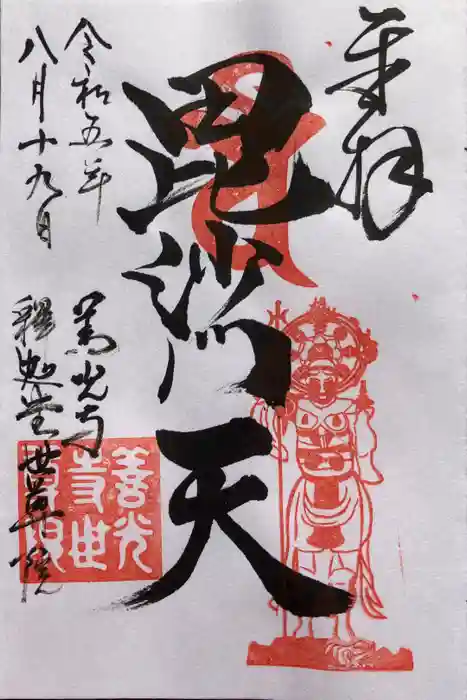 奉拝
毘沙門天
令和五年
八月十九日
善光寺
釋迦堂世尊院
善光
寺世
尊院